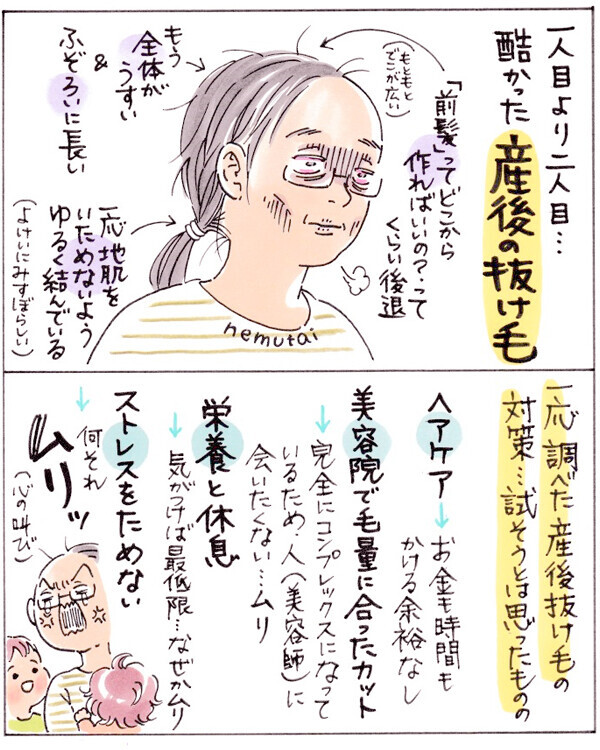 一人目より二人目…
酷かった産後の抜け毛
「前髪」ってどこから
作ればいいの?…って
くらい後退
(もともと
でこが広い)
もう
全体が
うすい
&
ふぞろいに長い
一応地肌を
いためないよう
ゆるく結んでいる
(よけいにみすぼらしい)
nemutai
一応調べた産後抜け毛の
対策…試そうとは思ったものの
ヘアケア→お金も時間も
かける余裕なし
美容院で毛量に合ったカット
→完全にコンプレックスになって
いるため、人(美容師)に
会いたくない…ムリ
栄養と休息
→気がつけば最低限…なぜかムリ
ストレスをためない
→何それ
ムリッ
(心の叫び)